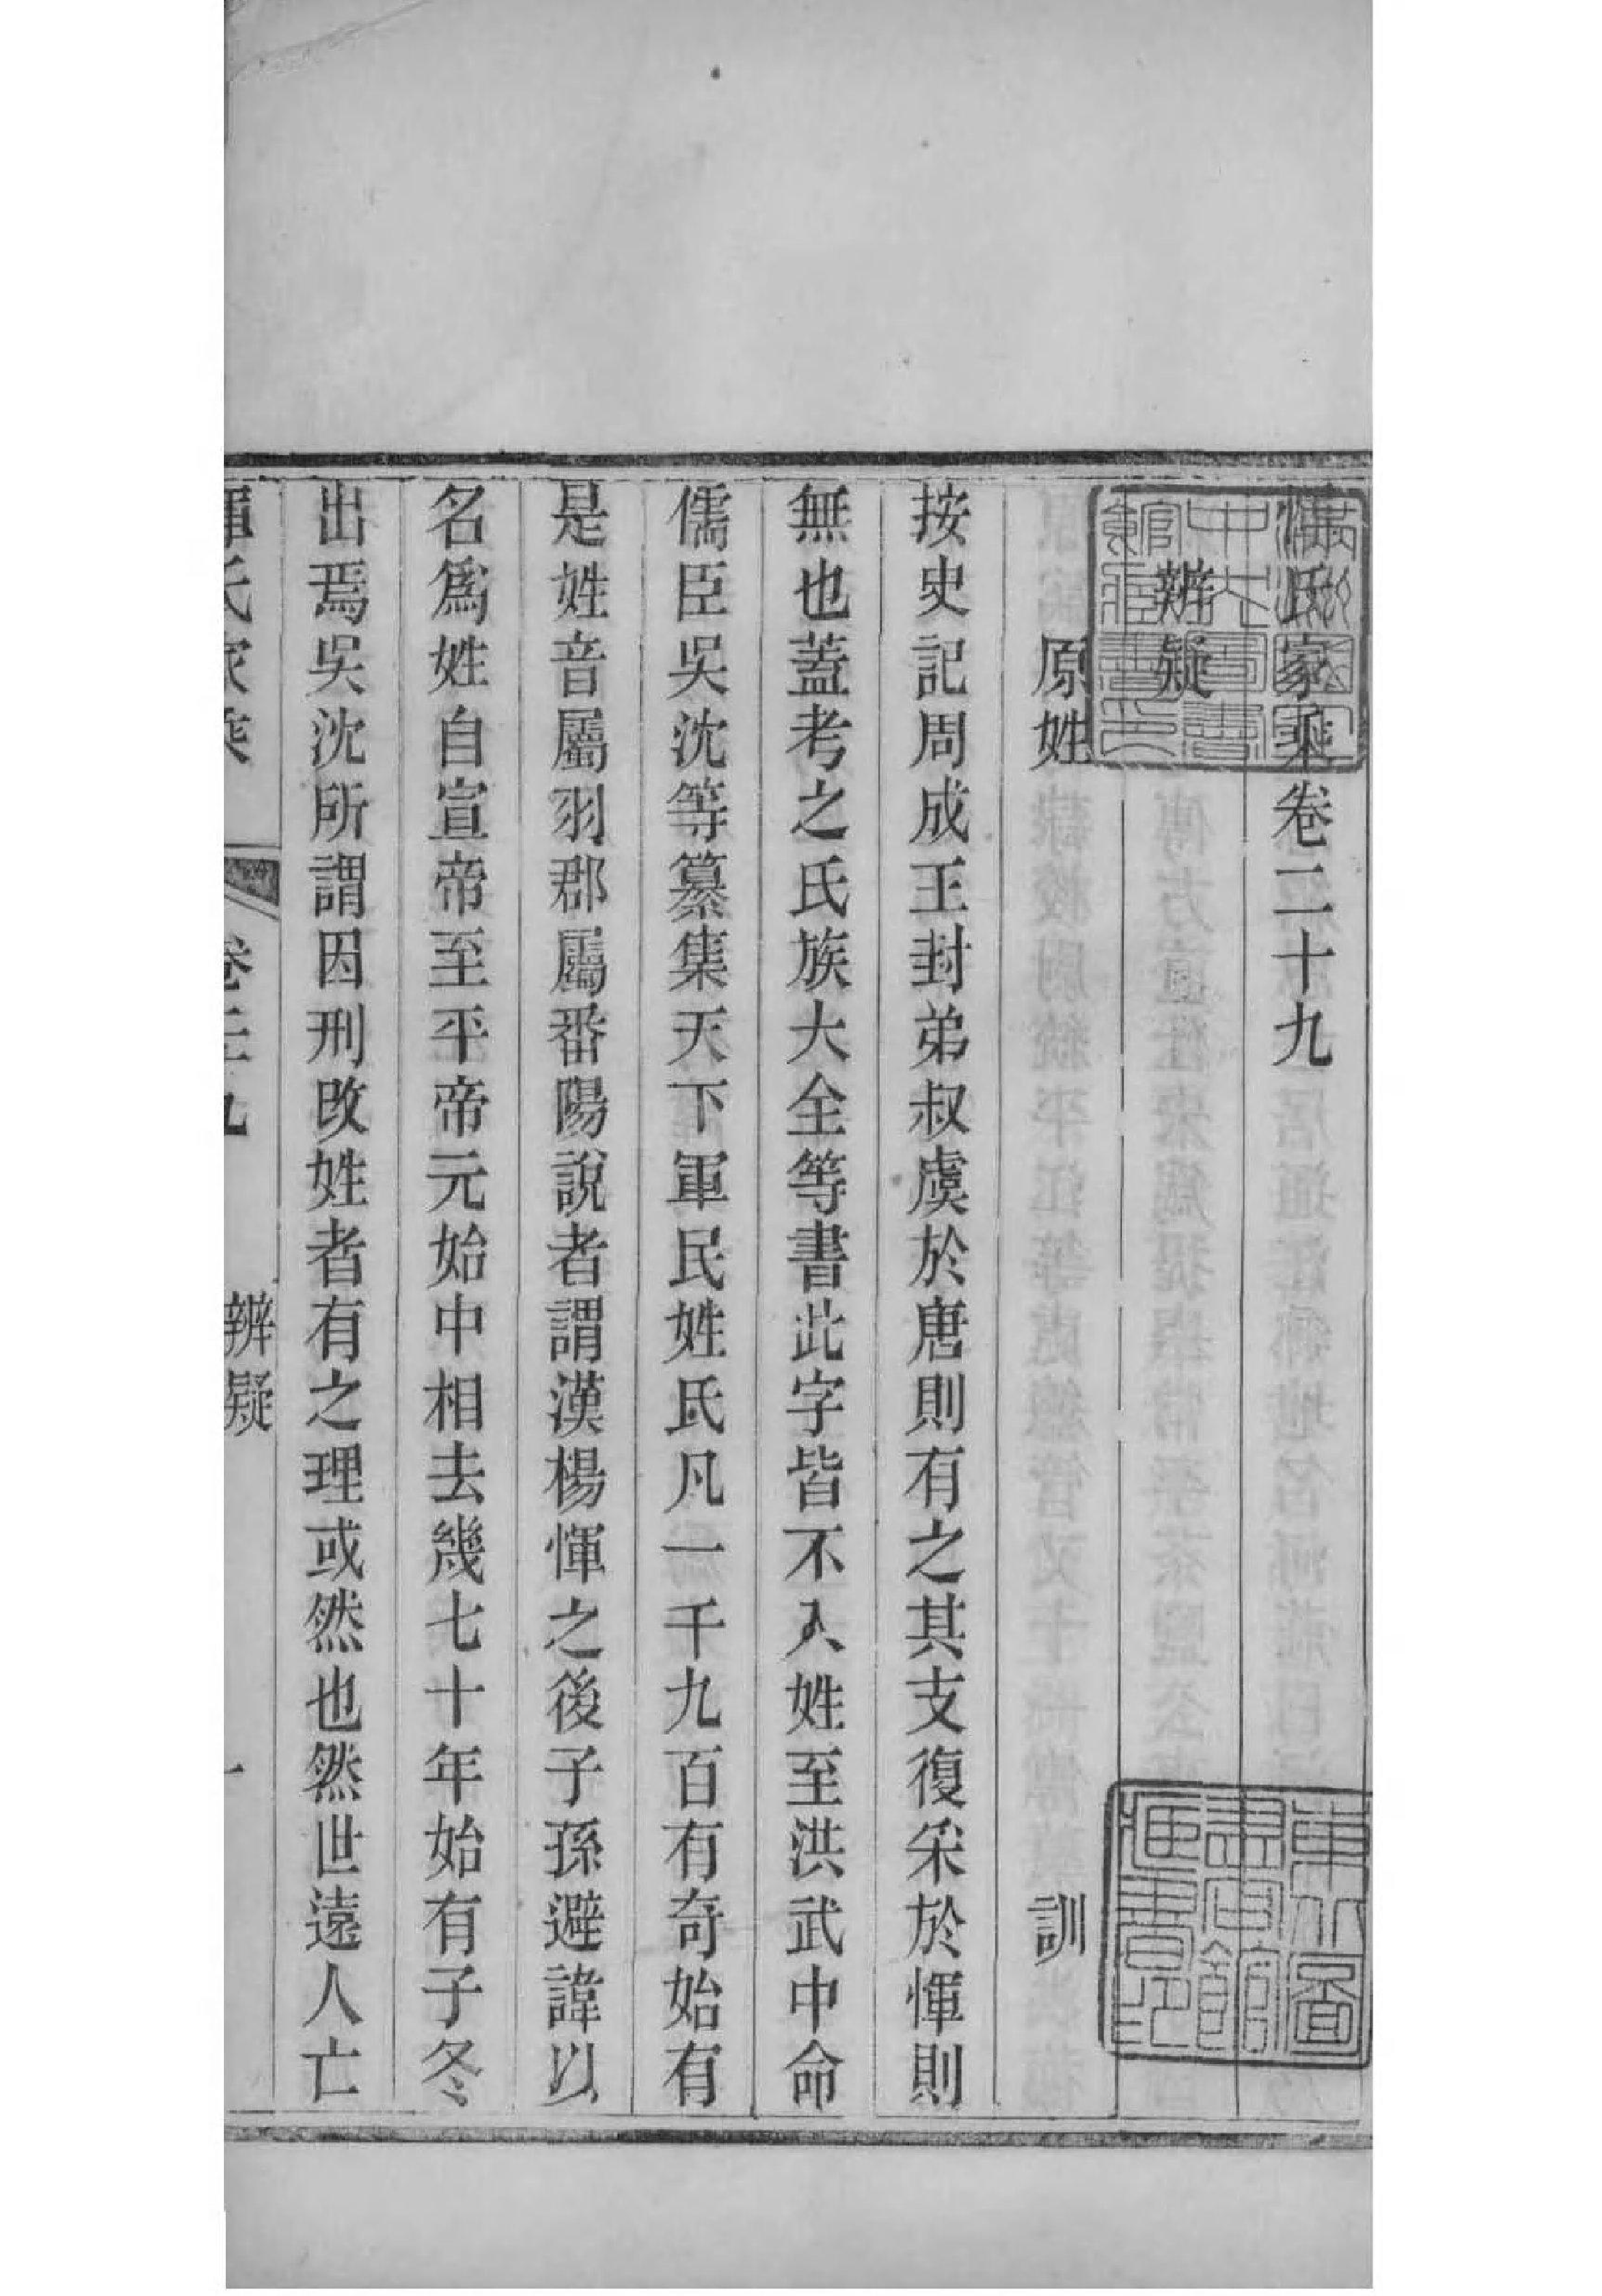 惲氏家乘卷二十九
辨疑
原姓 訓
按史記周成王封弟叔虞於唐則有之其支復采於惲則
無也蓋考之氏族大全等書此字皆不入姓至洪武中命
儒臣吳沈等纂集天下軍民姓氏凡一千九百有奇始有
是姓音屬羽郡屬番陽說者謂漢楊惲之後子孫避諱以
名爲姓自宣帝至平帝元始中相去幾七十年始有子冬
出焉吳沈所謂因刑改姓者有之理或然也然世遠人亡
惲氏家乘 卷二十九 辨疑 一
東北圖書館藏書印